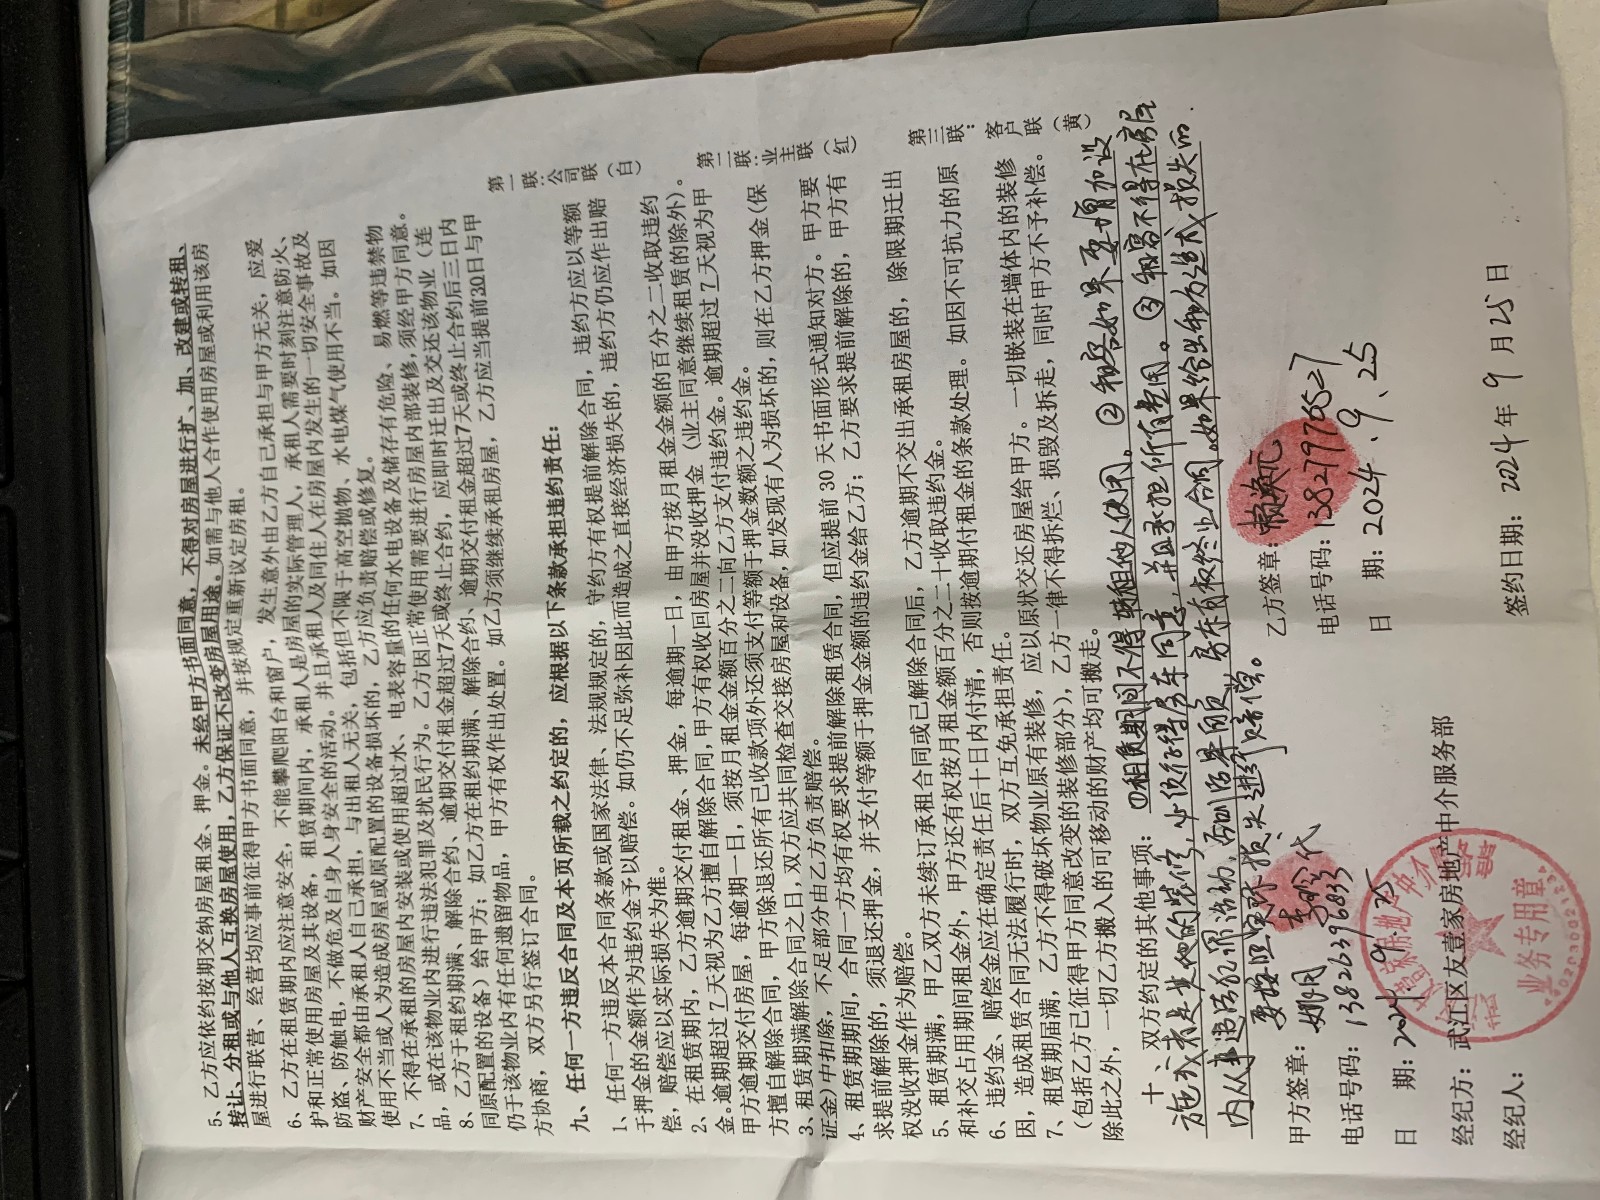 5、乙方应依约按期交纳房屋租金、押金。未经甲方书面同意，不得对房屋进行扩、加、改建或转租、
转让、分租或与他人互换房屋使用，乙方保证不改变房屋用途。如需与他人合作使用房屋或利用该房
屋进行联营、经营均应事前征得甲方书面同意，并按规定重新议定房租。
6、乙方在租赁期内应注意安全，不能攀爬阳台和窗户，发生意外由乙方自己承担与甲方无关，应爱
护和正常使用房屋及其设备，租赁期间内，承租人是房屋的实际管理人，承租人需要时刻注意防火、
防盗、防触电，不做危及自身人身安全的活动。并且承租人及同住人在房屋内发生的一切安全事故及
财产安全都由承租人自己承担，与出租人无关，包括但不限于高空抛物、水电煤气使用不当。如因
使用不当或人为造成房屋或原配置的设备损坏的，乙方应负责赔偿或修复。
7、不得在承租的房屋内安装或使用超过水、电表容量的任何水电设备及储存有危险、易燃等违禁物
品，或在该物业内进行违法犯罪及扰民行为。乙方因正常使用需要进行房屋内部装修,须经甲方同意。
8、乙方于租约期满、解除合约、逾期交付租金超过7天或终止合约，应即时迁出及交还该物业（连
同原配置的设备）给甲方；如乙方在租约期满、解除合约、逾期交付租金超过7天或终止合约后三日内
仍于该物业内有任何遗留物品，甲方有权作出处置。如乙方须继续承租房屋，乙方应当提前30日与甲
方协商，双方另行签订合同。
九、任何一方违反合同及本页所载之约定的，应根据以下条款承担违约责任：
1、任何一方违反本合同条款或国家法律、法规规定的，守约方有权提前解除合同，违约方应以等额
于押金的金额作为违约金予以赔偿。如仍不足弥补因此而造成之直接经济损失的，违约方仍应作出赔
偿，赔偿应以实际损失为准。
2、在租赁期内，乙方逾期交付租金、押金，每逾期一日，由甲方按月租金金额的百分之二收取违约
金。逾期超过7天视为乙方擅自解除合同,甲方有权收回房屋并没收押金（业主同意继续租赁的除外）。
甲方逾期交付房屋，每逾期一日，须按月租金金额百分之二向乙方支付违约金。逾期超过7天视为甲
方擅自解除合同，甲方除退还所有已收款项外还须支付等额于押金数额之违约金。
3、租赁期满解除合同之日，双方应共同检查交接房屋和设备，如发现有人为损坏的，则在乙方押金(保
证金)中扣除，不足部分由乙方负责赔偿。
4、租赁期期间，合同一方均有权要求提前解除租赁合同，但应提前30天书面形式通知对方。甲方要
求提前解除的，须退还押金，并支付等额于押金金额的违约金给乙方；乙方要求提前解除的，甲方有
权没收押金作为赔偿。
5、租赁期满，甲乙双方未续订承租合同或已解除合同后，乙方逾期不交出承租房屋的，除限期迁出
和补交占用期间租金外，甲方还有权按月租金额百分之二十收取违约金。
6、违约金、赔偿金应在确定责任后十日内付清，否则按逾期付租金的条款处理。如因不可抗力的原
因，造成租赁合同无法履行时，双方互免承担责任。
7、租赁期届满，乙方不得破坏物业原有装修，应以原状交还房屋给甲方。一切嵌装在墙体内的装修
(包括乙方已征得甲方同意改变的装修部分），乙方一律不得拆烂、损毁及拆走，同时甲方不予补偿。
除此之外，一切乙方搬入的可移动的财产均可搬走。
第一联：公司联（白）
第二联：业主联（红）
第三联：客户联（黄）
十、双方约定的其他事项：①租赁期间不得转租他人使用。②租客如果要增加设
施或者是其他的装修，必须征得房东同意，并且承担所有费用。③租客不得在房屋
内从事违法犯罪活动，否则后果自负，房东有权终止合同。如果给出租方造成损失的
要按照实际损失进行赔偿。
甲方签章：
电话号码：13826396833
日 期：2024 9 25
乙方签章：
电话号码：138279776527
日 期：2024.9.25
经纪方：武江区友壹家房地产中介服务部
经纪人：
签约日期：2024年9月25日
业务专用章